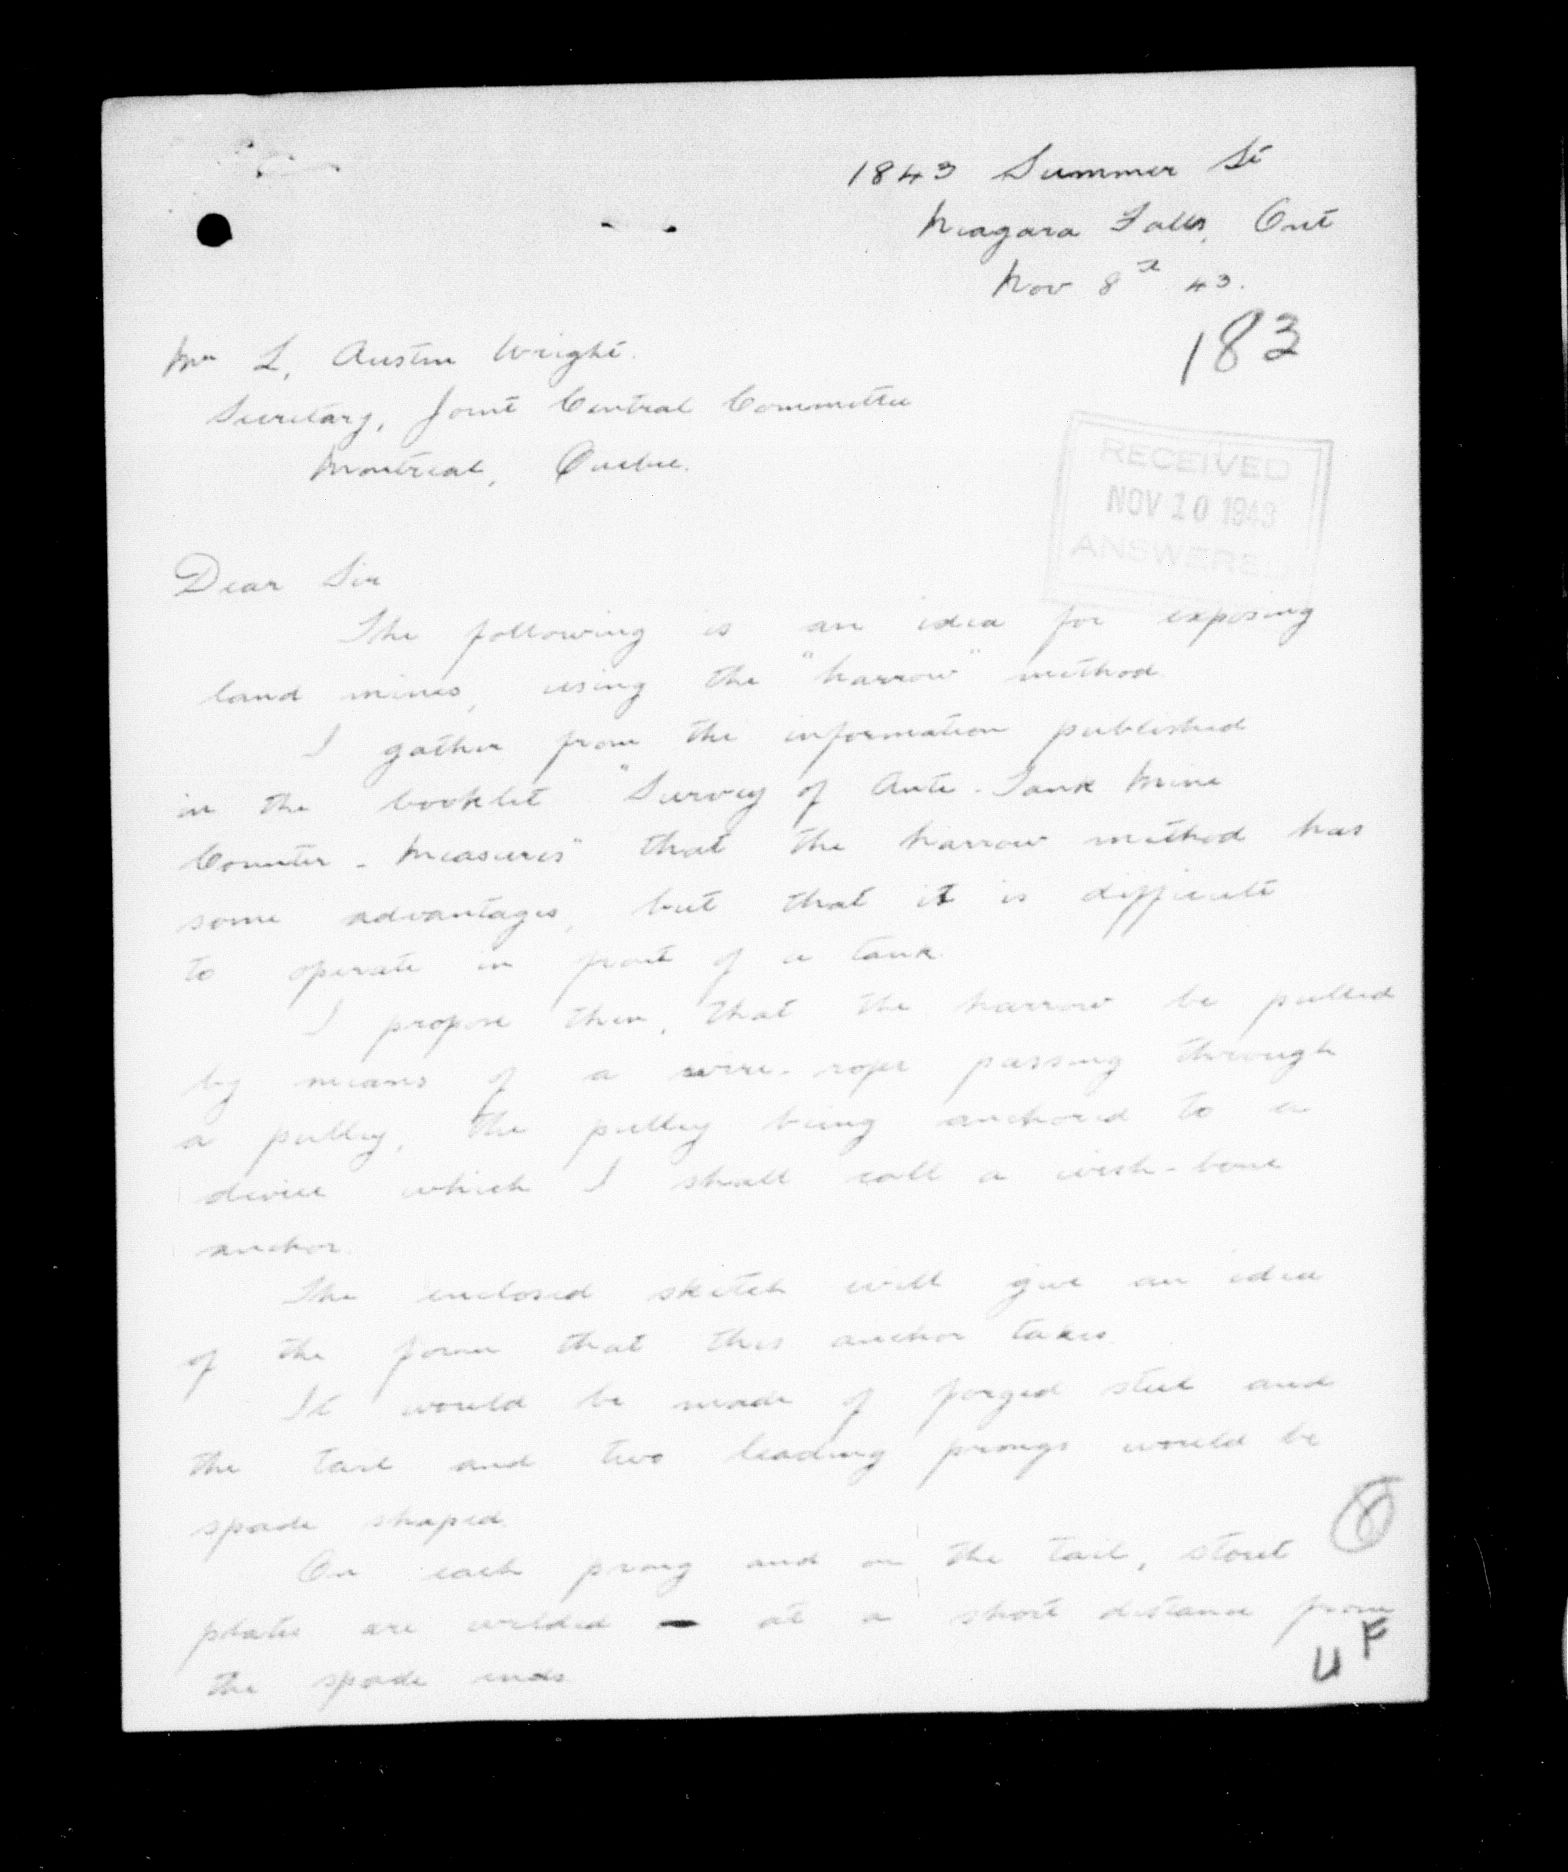 1843 Summer St
Niagara Falls, Ont
Nov 8th 43.
183
Mr L. Austin Wright.
Secretary, Joint Central Committee
Montreal, Quebec.
RECEIVED
NOV 10 1943
ANSWERED
Dear Sir
The following is an idea for exposing
land mines, using the "harrow" method.
I gather from the information published
in the booklet "Survey of Anti-Tank Mine
Counter-Measures" that the harrow method has
some advantages, but that it is difficult
to operate in front of a tank.
I propose then, that the harrow be pulled
by means of a wire-rope passing through
a pulley, the pulley being anchored to a
device which I shall call a wish-bone
anchor.
The enclosed sketch will give an idea
of the form that this anchor takes
It would be made of forged steel and
the tail and two leading prongs would be
spade shaped
On each prong and on the tail, stout
plates are welded at a short distance from
the spade ends
UF